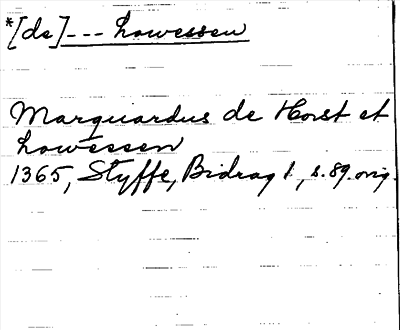 *[de] --- Lowessen
Marquardus de Horst et
Lowessen
1365, Styffe, Bidrag 1, s. 89. orig.